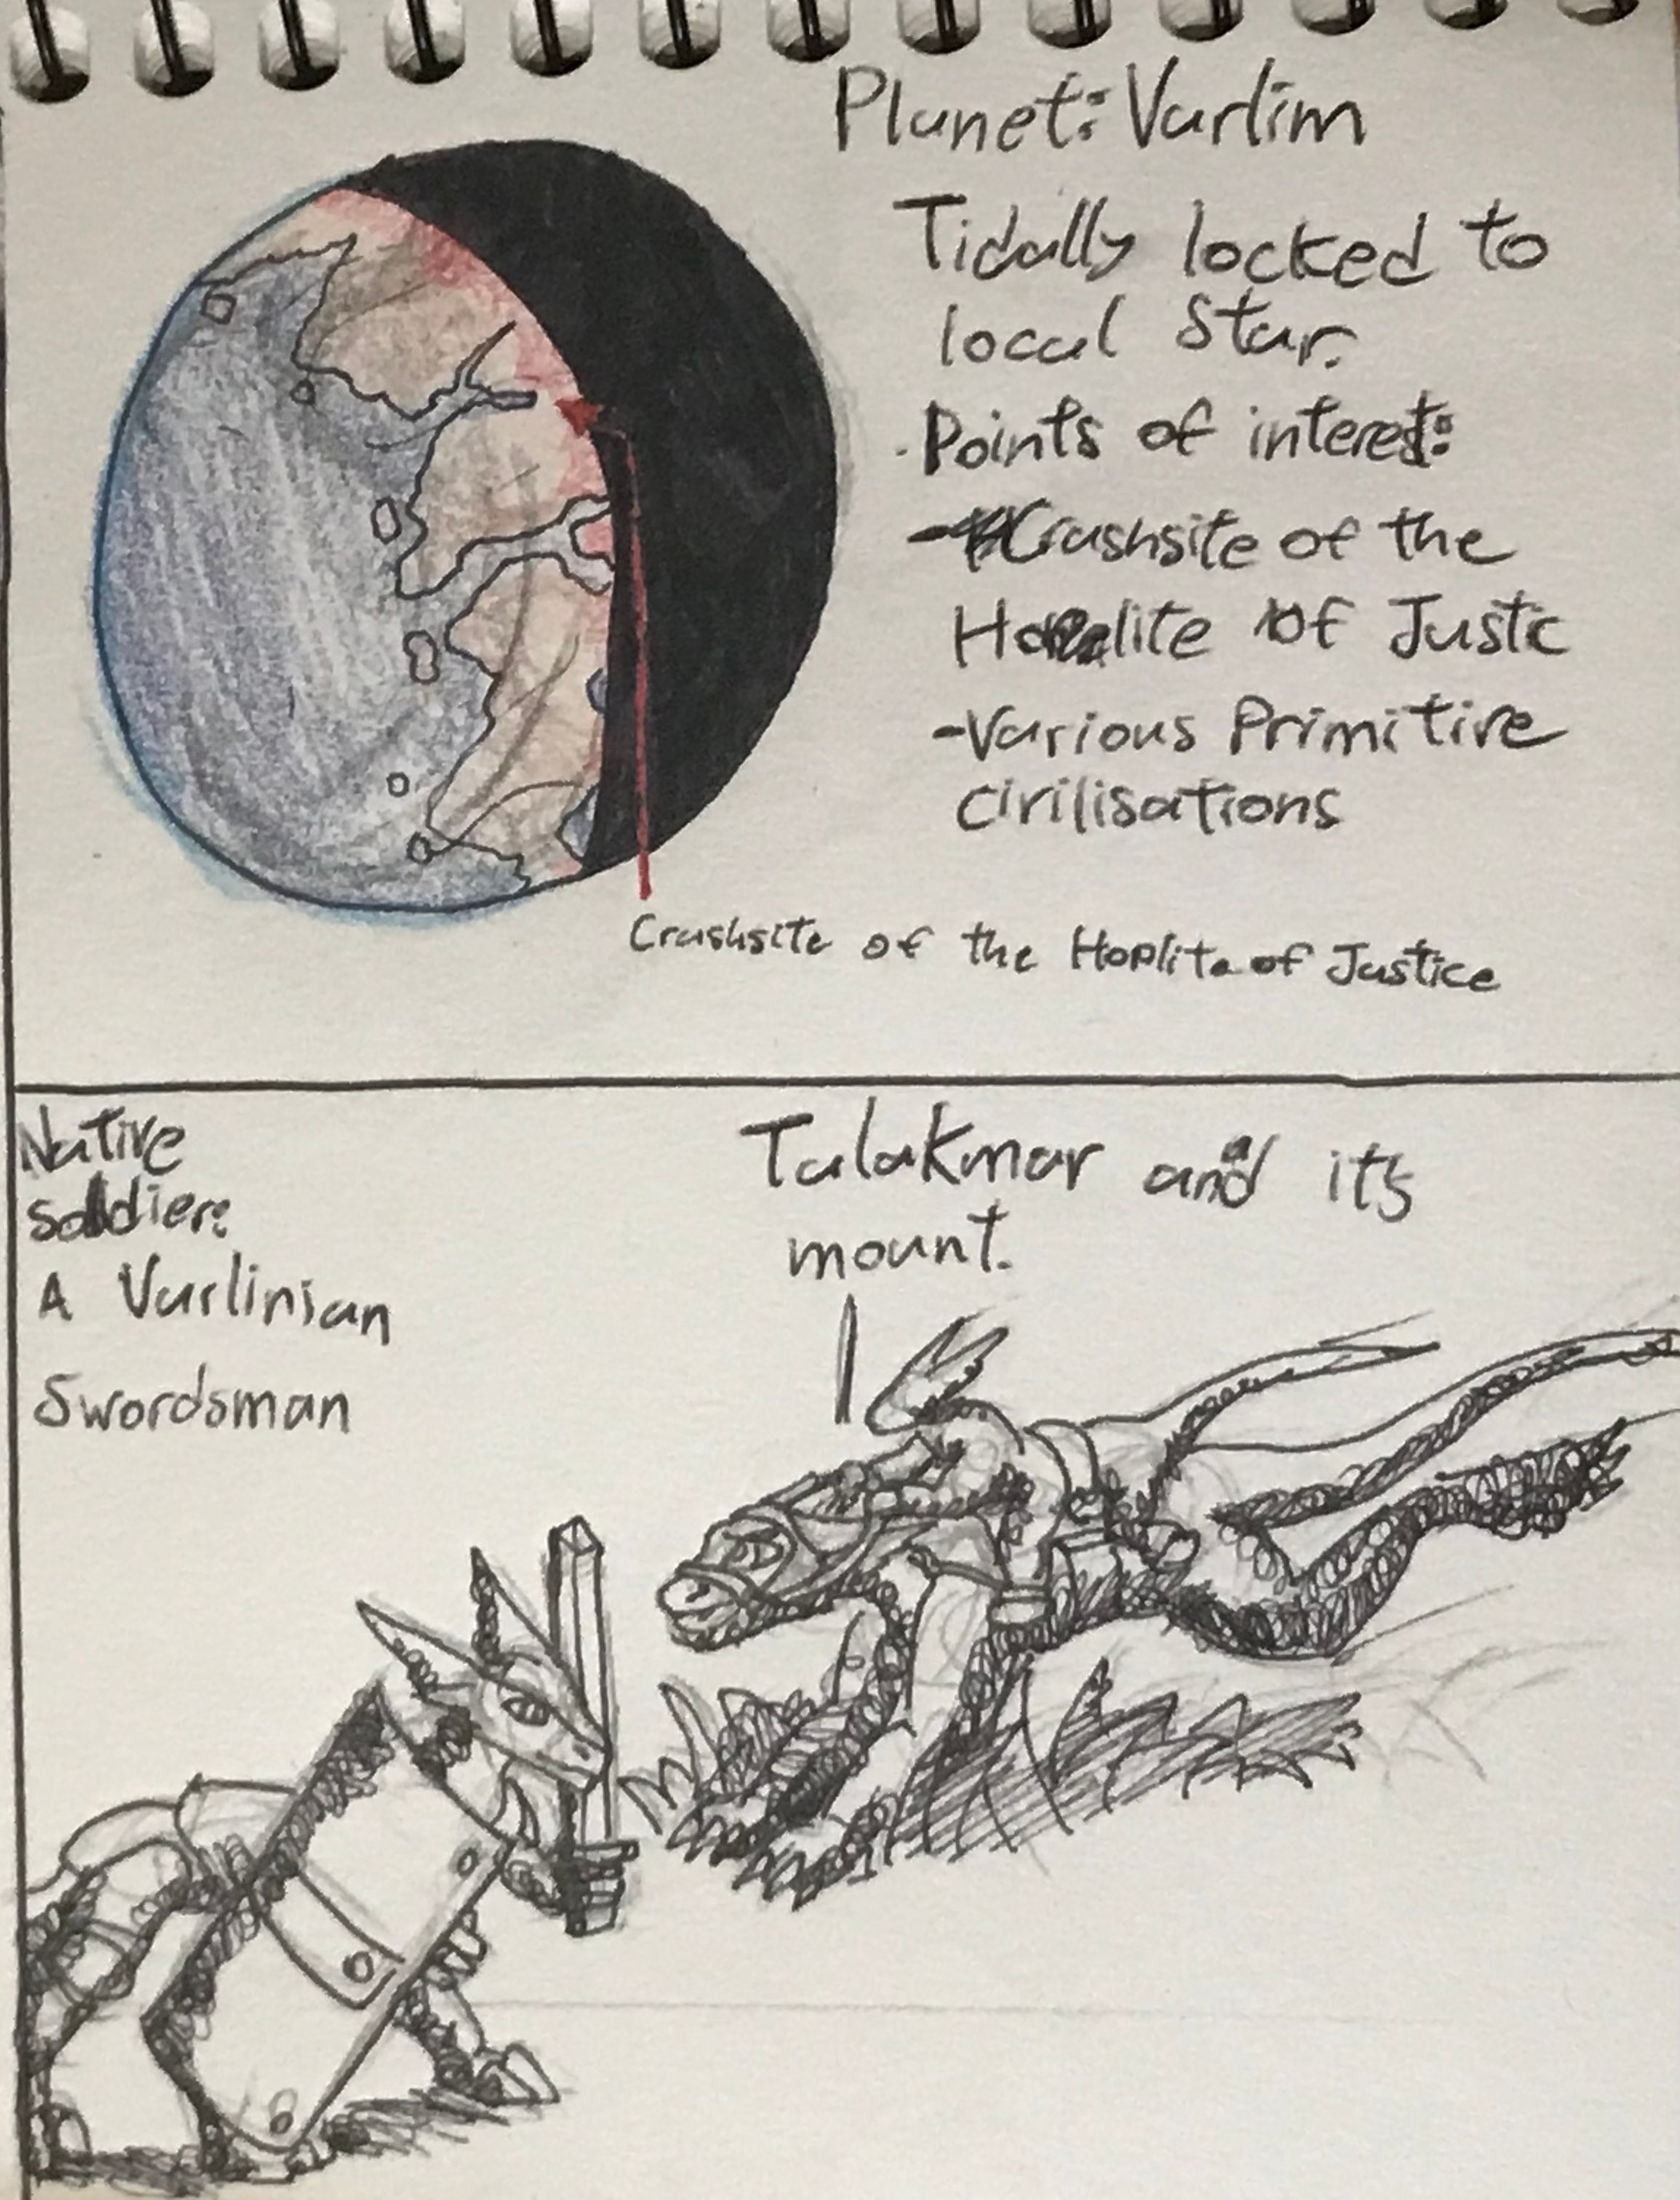 Planet: Varlim
Tidally locked to
local Star.
Points of interest:
- Crashsite of the
Hoplite of Justic
- Various Primitive
civilisations
Crashsite of the Hoplite of Justice
Native
soldier:
A Varlinian
Swordsman
Talakmar and its
mount.